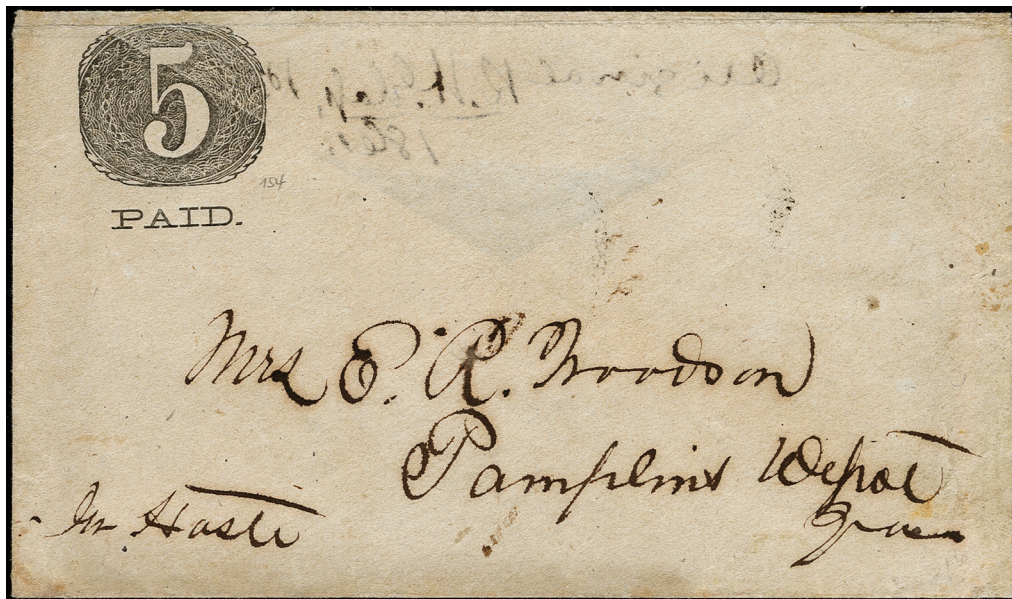 5
PAID.
154
1861
Mrs E. R. Woodson
Pamplins Depot
Va
In Haste